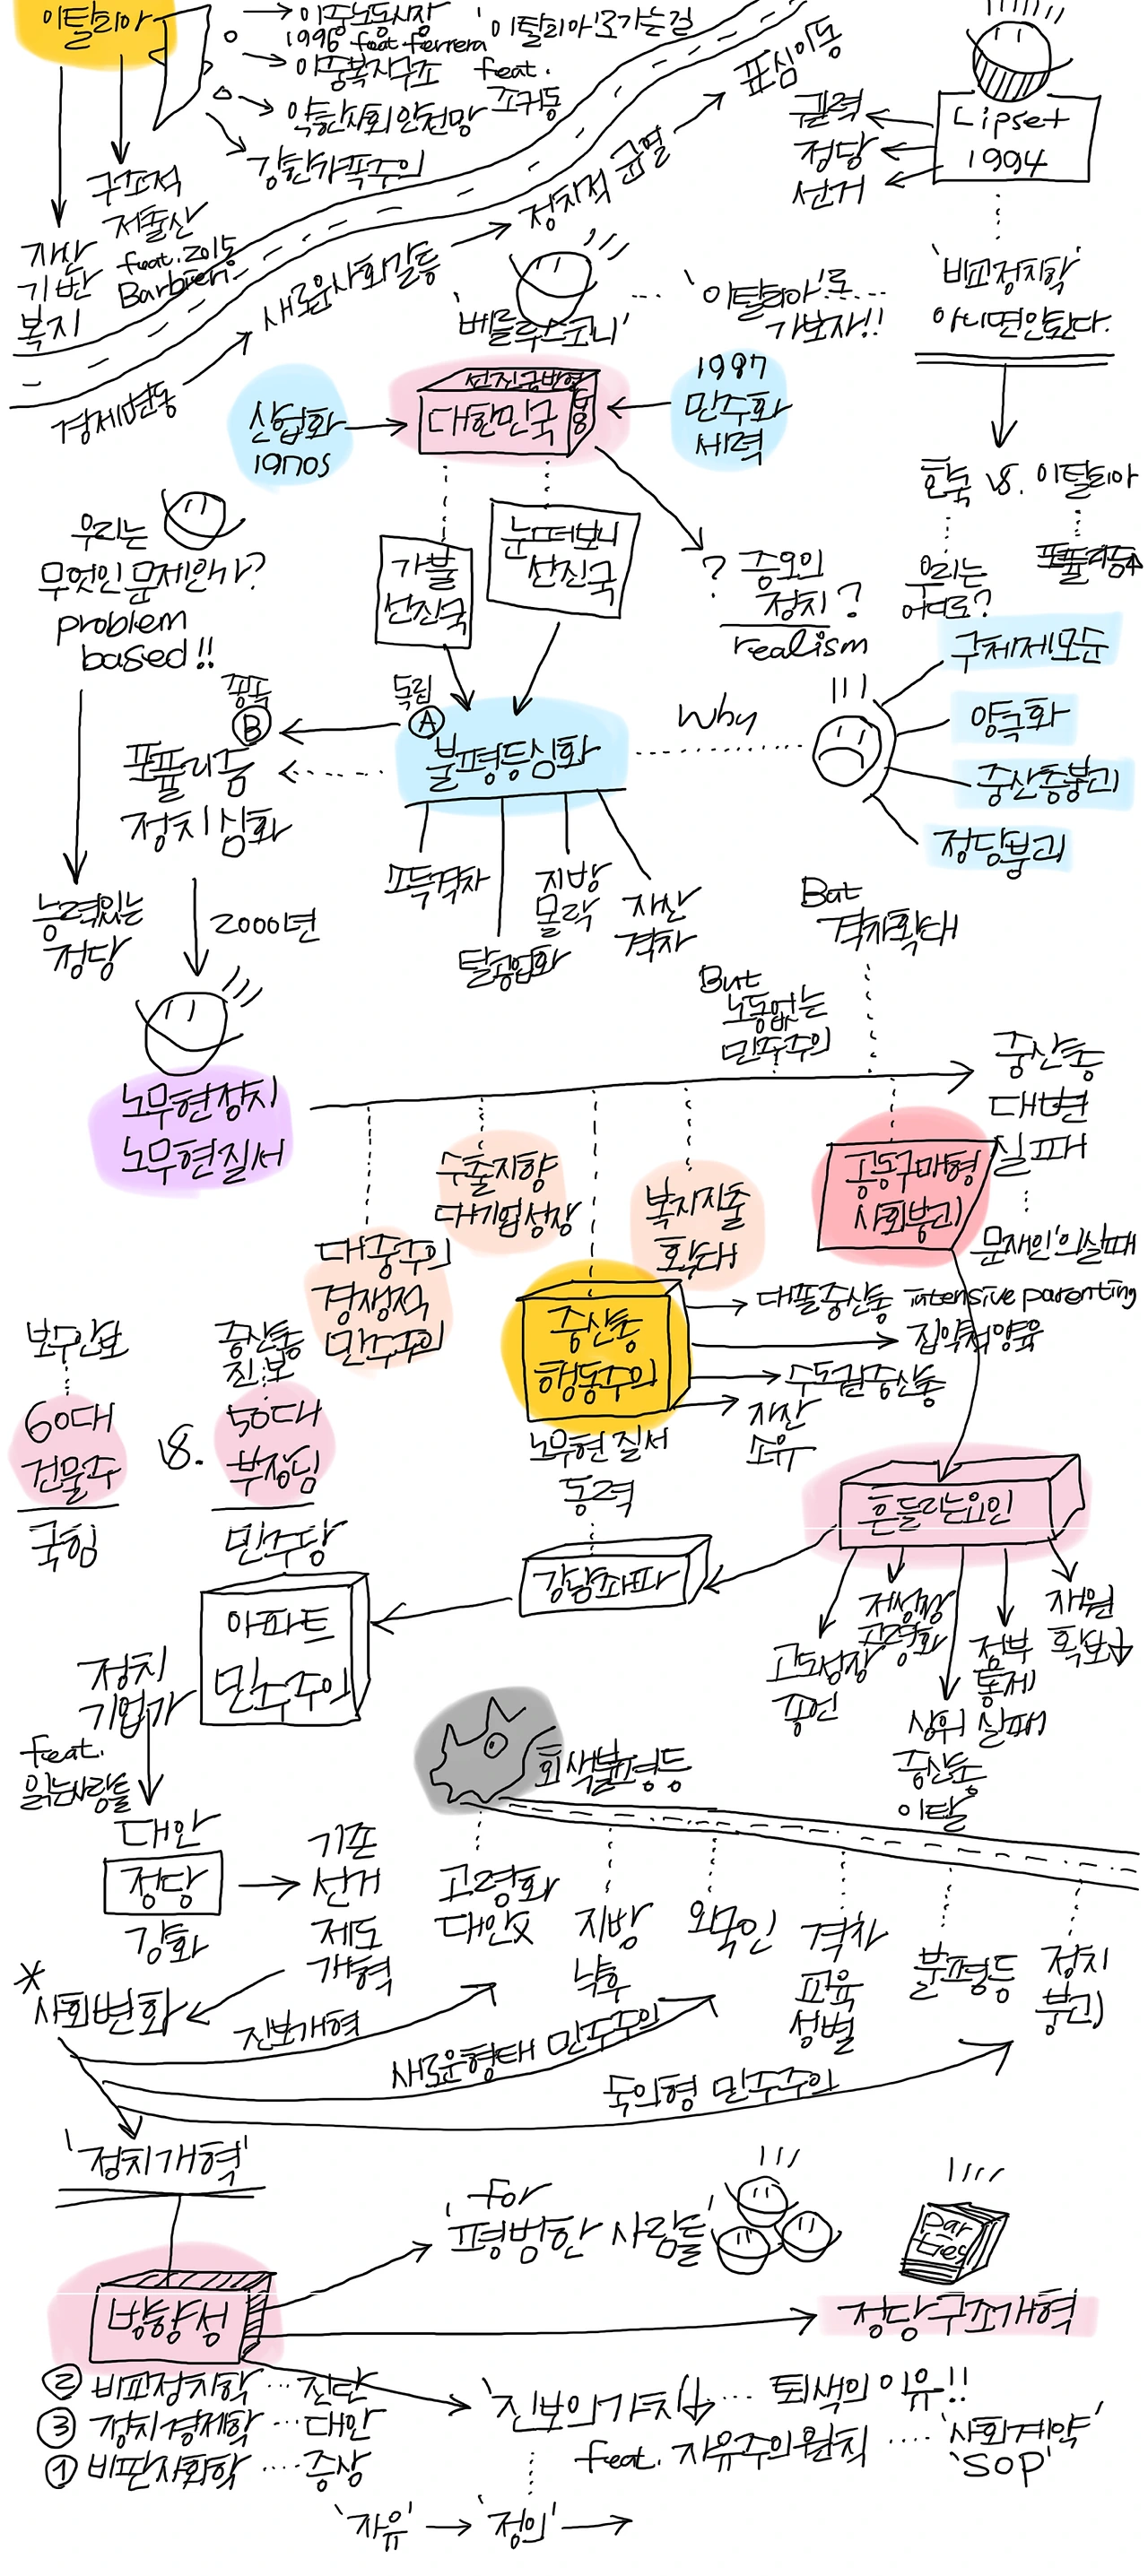 이탈리아
이중노동시장
1996 feat. ferrera
이중복지구조
약한사회안전망
강한가족주의
'이탈리아'로가는길
feat.
조귀동
구조적
저출산
feat. 2015
Barbieri
자산
기반
복지
경제변동
새로운사회갈등
정치적 균열
표심이동
Lipset
1994
권력
정당
선거
'비교정치학'
아니면안된다.
'베를루스코니'
'이탈리아'로
가보자!!
산업화
1970s
선진국반열
대한민국
1987
민주화
세력
한국 vs. 이탈리아
우리는
어디로?
포퓰리즘↑
우리는
무엇인문제인가?
problem
based!!
가불
선진국
눈떠보니
선진국
? 증오의
정치?
realism
구체제모순
양극화
중산층붕괴
정당붕괴
Why
독립
Ⓐ
불평등심화
종속
Ⓑ
포퓰리즘
정치심화
소득격차
탈공업화
지방
몰락
자산
격차
능력있는
정당
2000년
But
격차확대
But
노동없는
민주주의
노무현정치
노무현질서
중산층
대변
실패
문재인'의실패
대중주의
경쟁적
민주주의
수출지향
대기업성장
복지지출
확대
공동구매형
사회붕괴
중산층
행동주의
노무현 질서
동력
대졸중산층
intensive parenting
집약적양육
수도권중산층
자산
소유
보수안보
60대
건물주
국힘
vs.
중산층
진보
50대
부장님
민주당
흔들리는요인
강남좌파
아파트
민주주의
고도성장
종언
저성장
고령화
상위
중산층
이탈
정부
통제
실패
재원
확보↓
정치
기업가
feat.
읽는사람들
대안
정당
강화
기존
선거
제도
개혁
회색불평등
고령화
대안X
지방
낙후
외국인
격차
교육
성별
불평등
정치
붕괴
*사회변화
진보개혁
새로운형태 민주주의
숙의형 민주주의
'정치개혁'
방향성
for
'평범한 사람들'
Parties
정당구조개혁
② 비교정치학 … 진단
③ 정치경제학 … 대안
① 비판사회학 … 증상
'진보의가치↓ … 퇴색의 이유!!
feat. 자유주의원칙 …… '사회계약'
'SOP'
'자유' → '정의' →